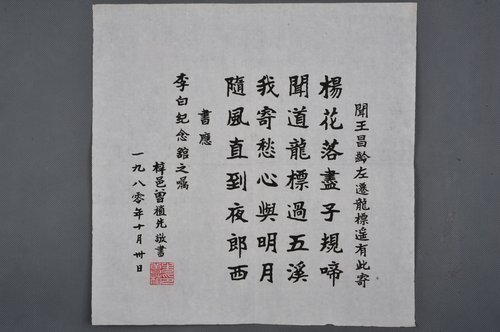 聞王昌齡左遷龍標遥有此寄
楊花落盡子規啼
聞道龍標過五溪
我寄愁心與明月
隨風直到夜郎西
書應
李白紀念舘之囑
梓邑曾植先敬書
一九八〇年十月卅日